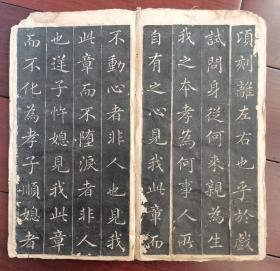 頃刻離左右也乎於戲
試問身從何來親為生
我之本孝為何事人所
自有之心見我此章而
不動心者非人也見我
此章而不墮淚者非人
也逆子忤媳見我此章
而不化為孝子順媳者